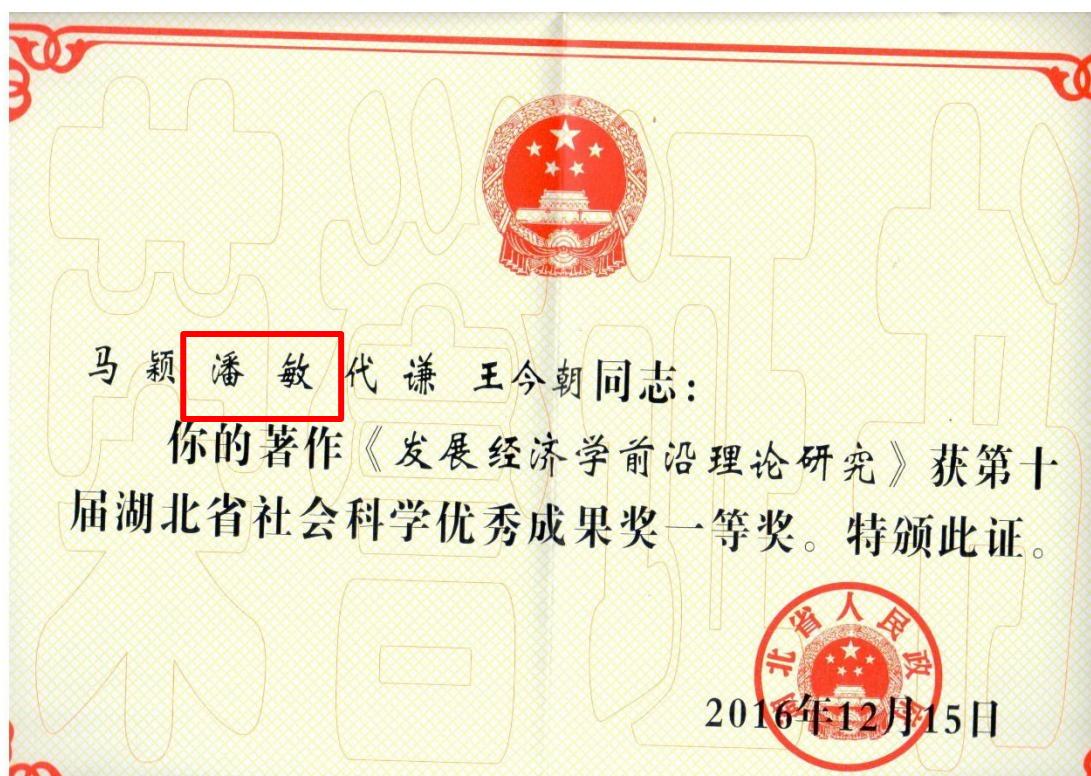 马颖 潘敏 代谦 王今朝同志：
你的著作《发展经济学前沿理论研究》获第十
届湖北省社会科学优秀成果奖一等奖。特颁此证。
湖北省人民政府
2016年12月15日